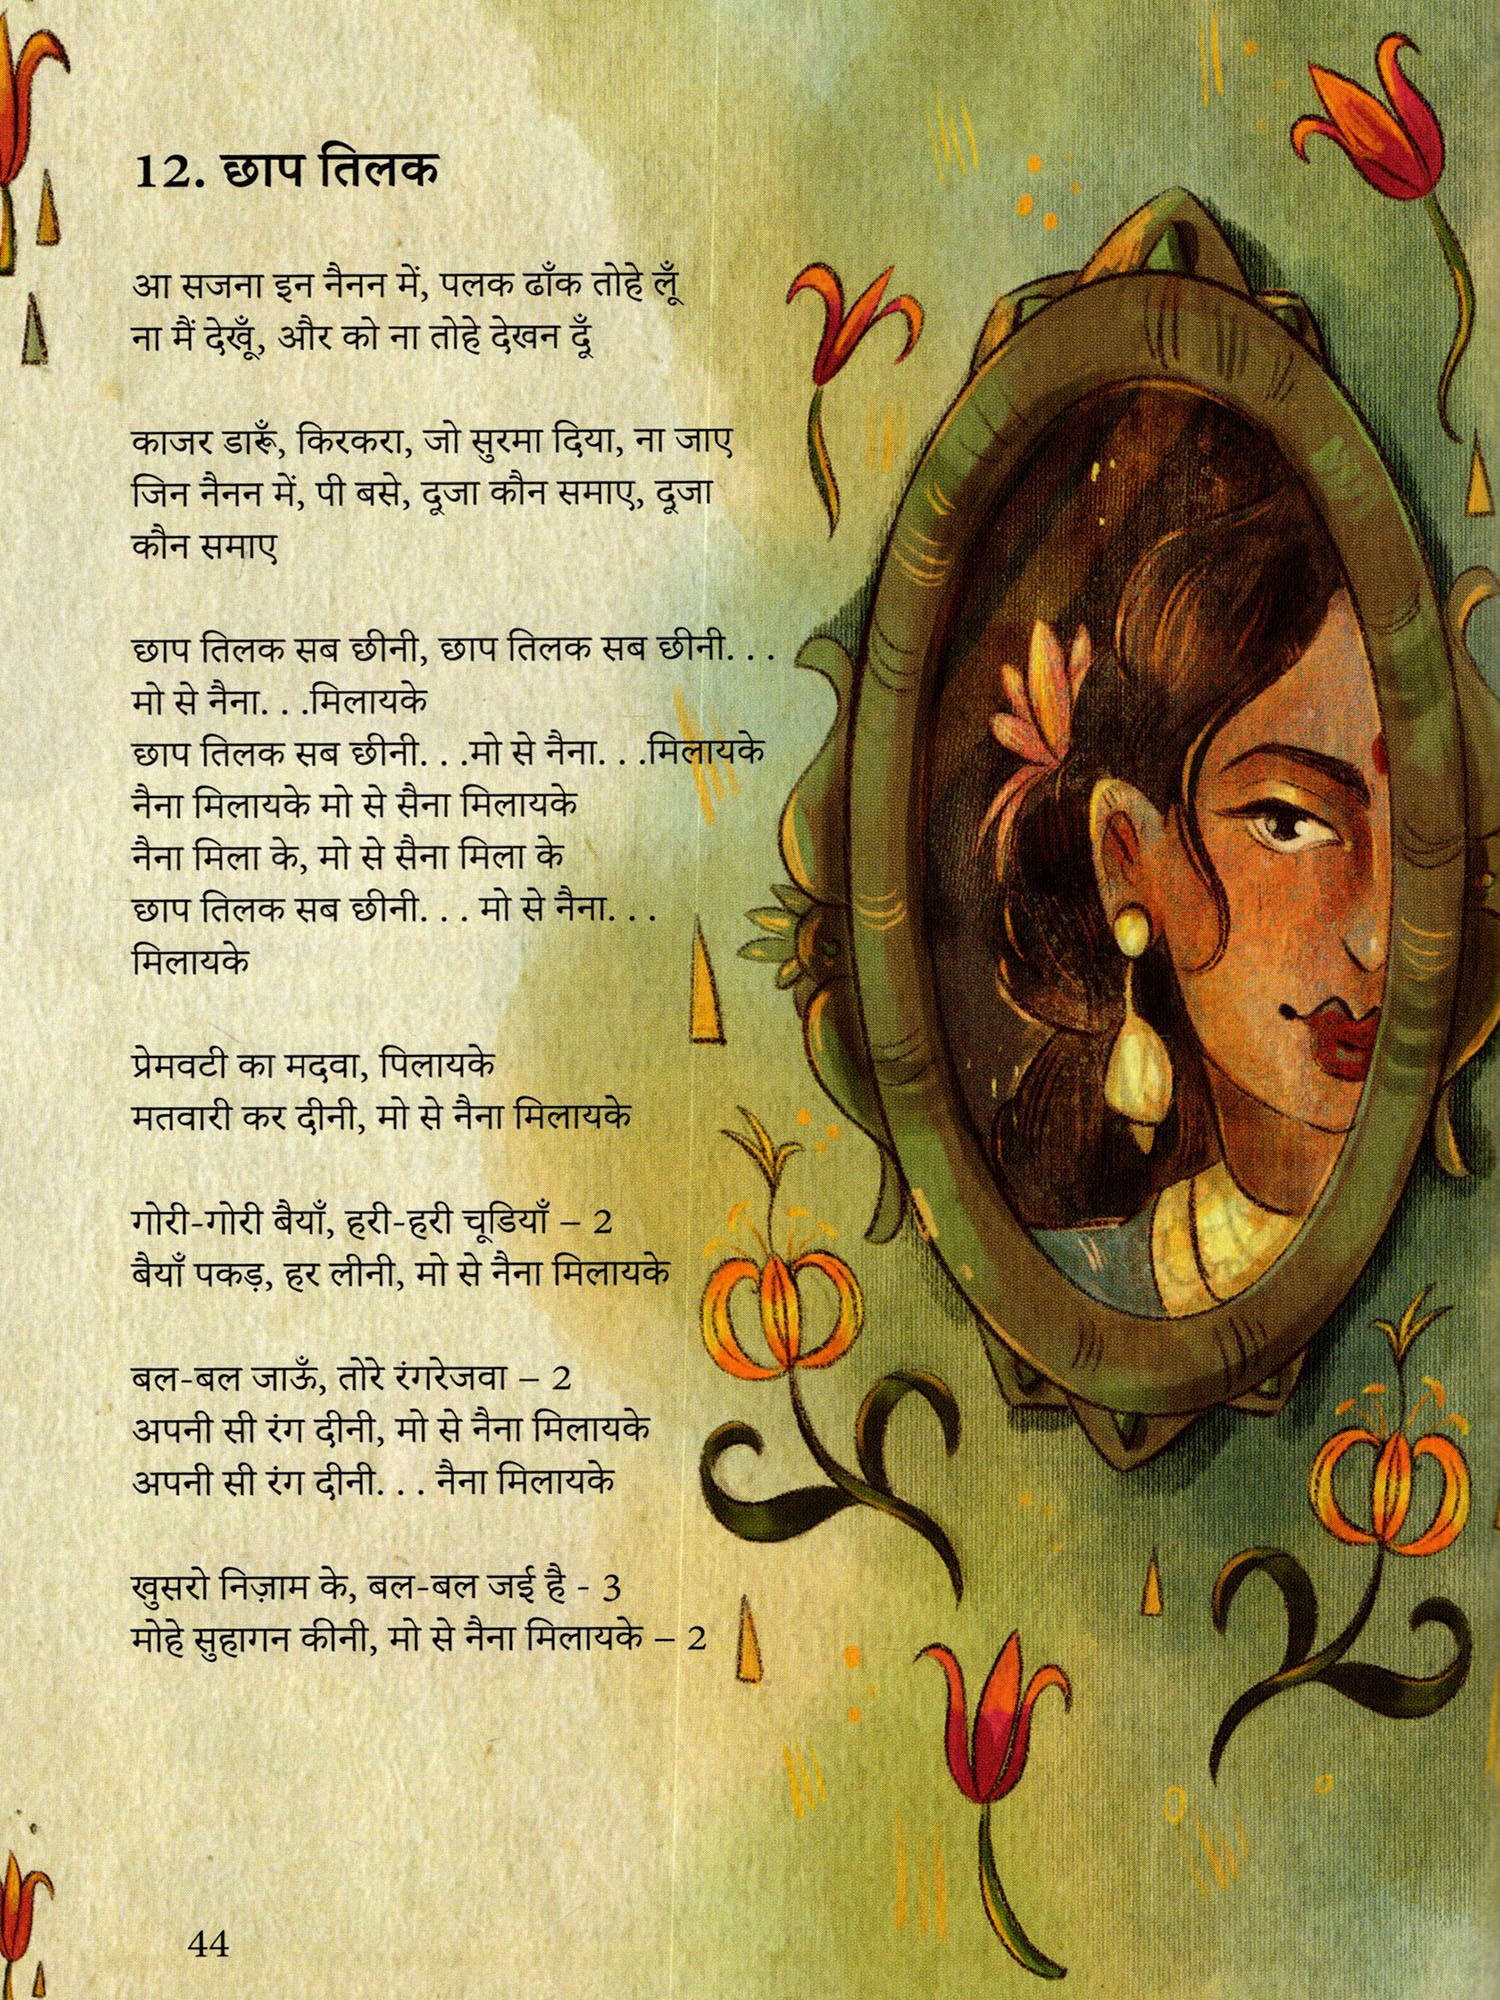 12. छाप तिलक
आ सजना इन नैनन में, पलक ढाँक तोहे लूँ
ना मैं देखूँ, और को ना तोहे देखन दूँ
काजर डारूँ, किरकरा, जो सुरमा दिया, ना जाए
जिन नैनन में, पी बसे, दूजा कौन समाए, दूजा
कौन समाए
छाप तिलक सब छीनी, छाप तिलक सब छीनी. . .
मो से नैना. . .मिलायके
छाप तिलक सब छीनी. . .मो से नैना. . .मिलायके
नैना मिलायके मो से सैना मिलायके
नैना मिला के, मो से सैना मिला के
छाप तिलक सब छीनी. . . मो से नैना. . .
मिलायके
प्रेमवटी का मदवा, पिलायके
मतवारी कर दीनी, मो से नैना मिलायके
गोरी-गोरी बैयाँ, हरी-हरी चूडियाँ – 2
बैयाँ पकड़, हर लीनी, मो से नैना मिलायके
बल-बल जाऊँ, तोरे रंगरेजवा – 2
अपनी सी रंग दीनी, मो से नैना मिलायके
अपनी सी रंग दीनी. . . नैना मिलायके
खुसरो निज़ाम के, बल-बल जई है - 3
मोहे सुहागन कीनी, मो से नैना मिलायके – 2
44